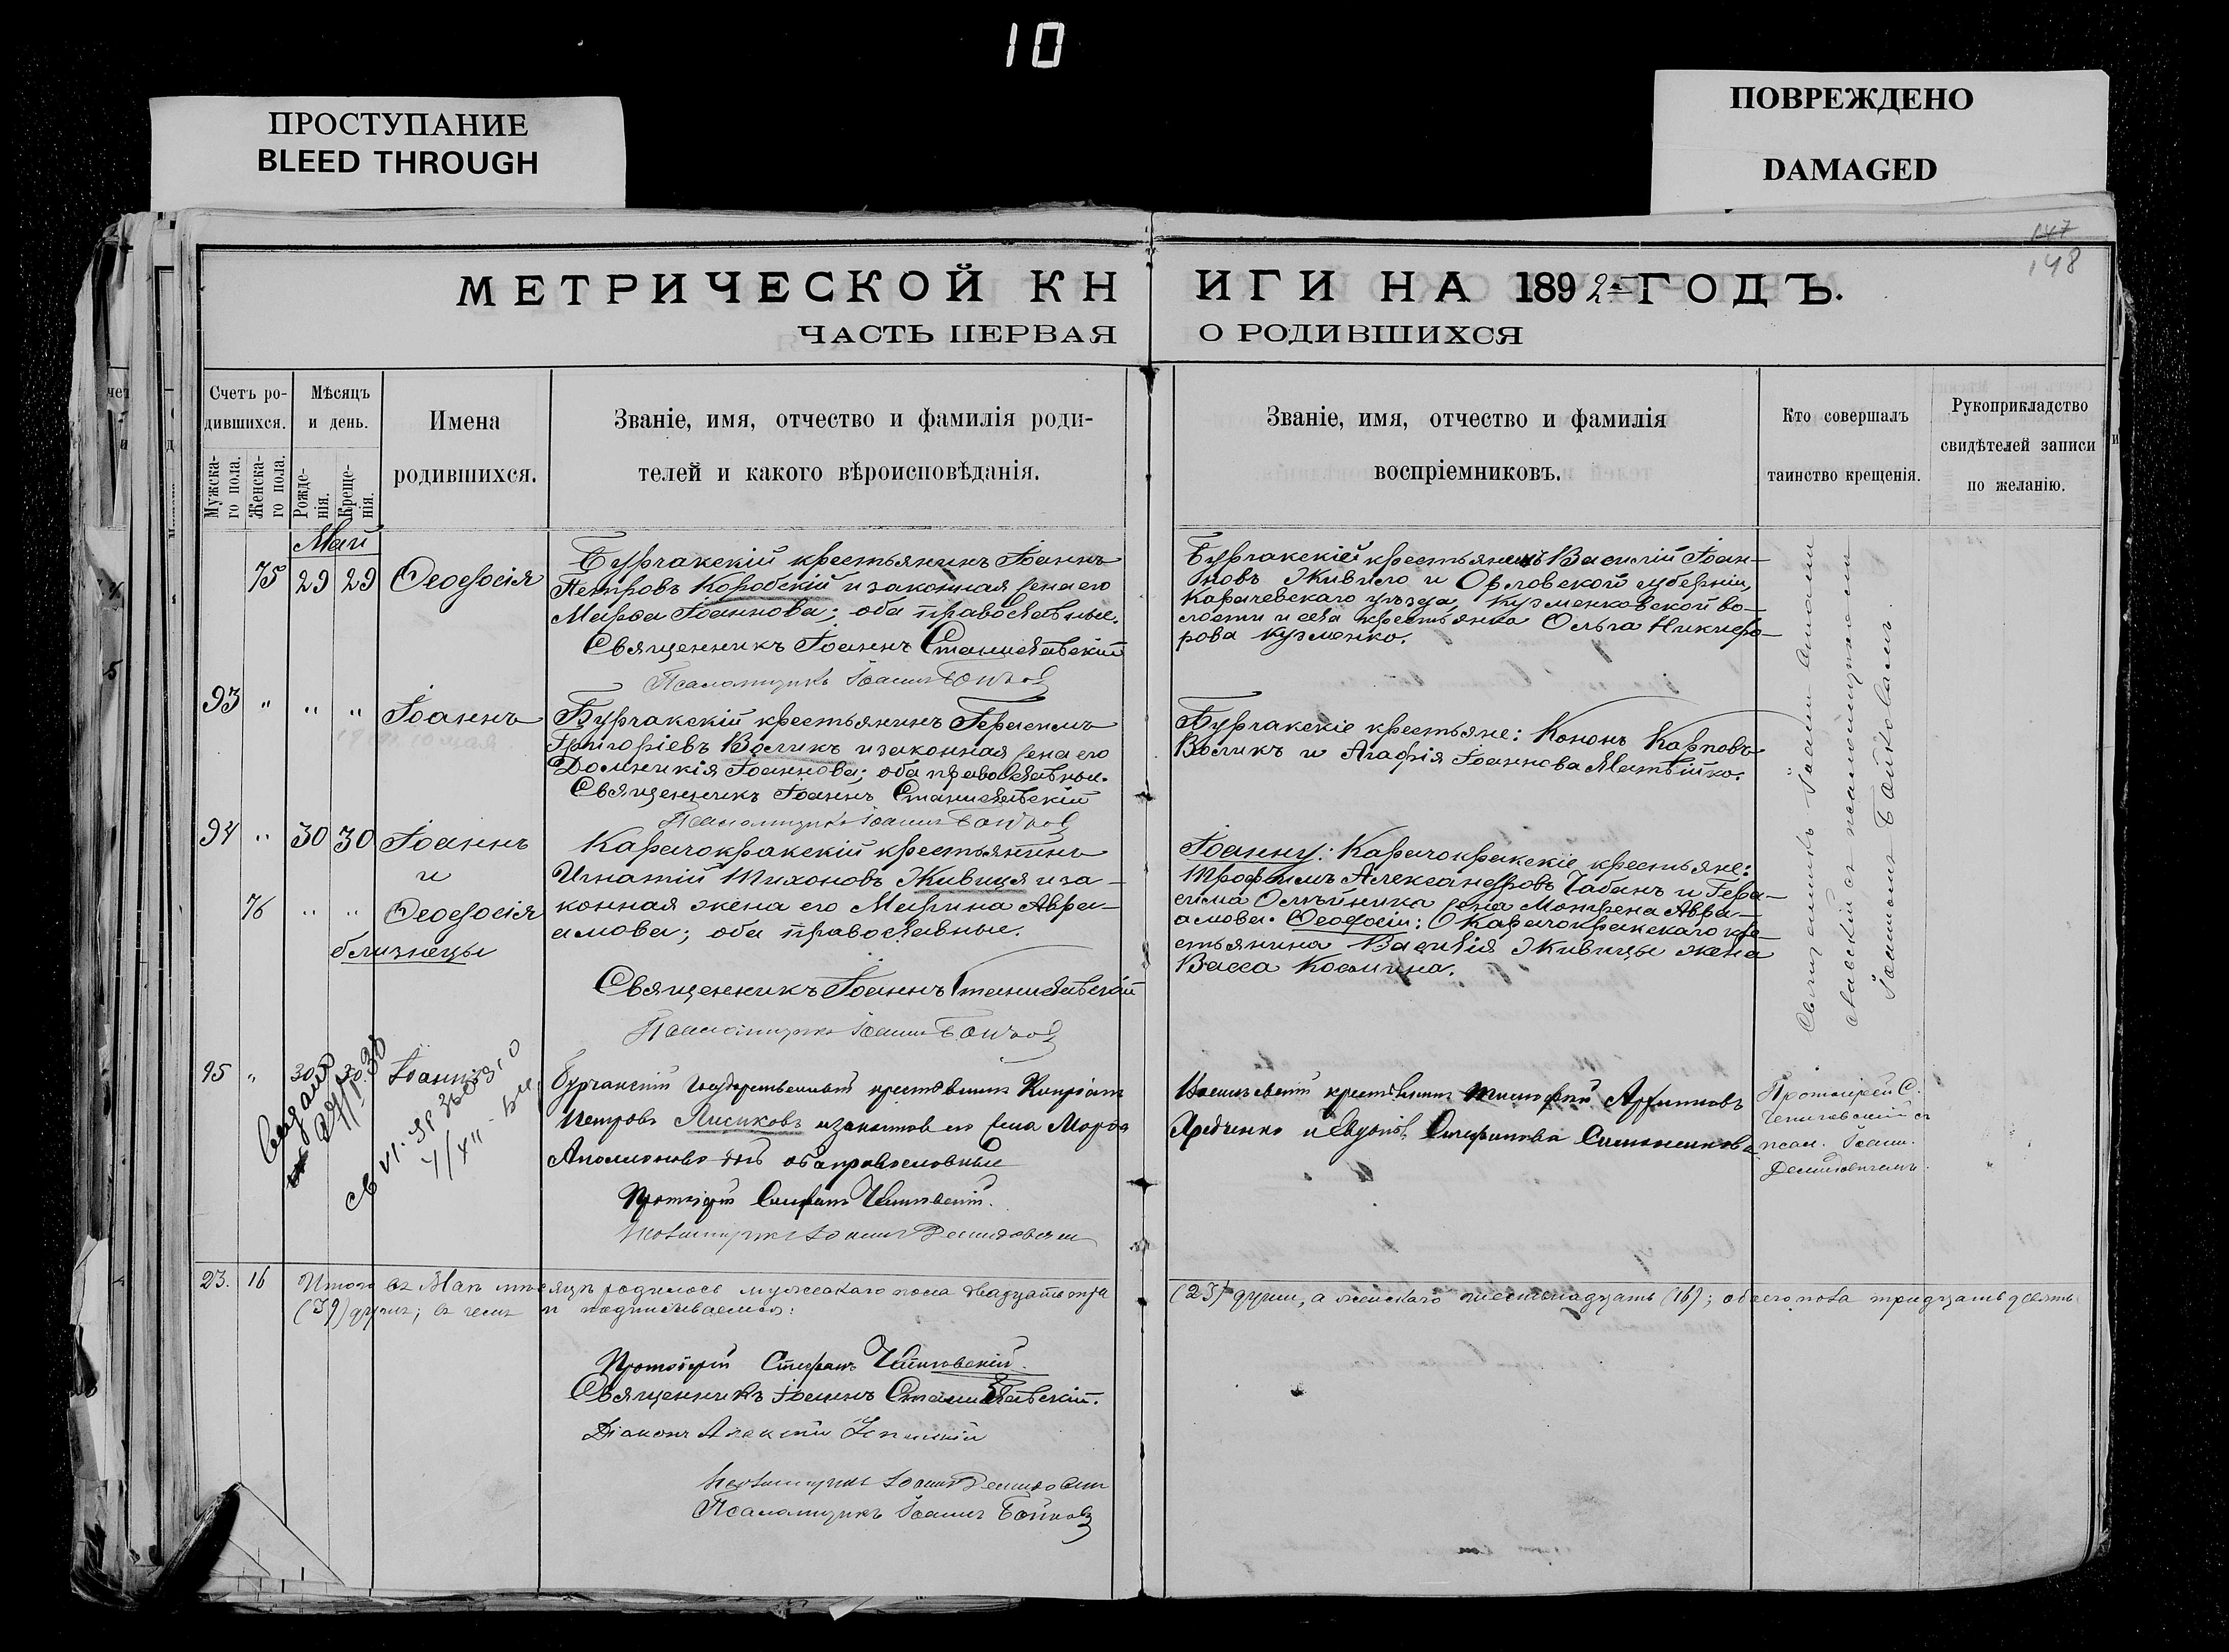 10
ПРОСТУПАНИЕ
BLEED THROUGH
ПОВРЕЖДЕНО
DAMAGED
147
148
МЕТРИЧЕСКОЙ КНИГИ НА 1892 ГОДЪ.
ЧАСТЬ ПЕРВАЯ О РОДИВШИХСЯ
Счетъ ро-
дившихся.
Мужска-
го пола.
Женска-
го пола.
Мѣсяцъ
и день.
Рожде-
нія.
Креще-
нія.
Имена
родившихся.
Званіе, имя, отчество и фамилія роди-
телей и какого вѣроисповѣданія.
Званіе, имя, отчество и фамилія
воспріемниковъ.
Кто совершалъ
таинство крещенія.
Рукоприкладство
свидѣтелей записи
по желанію.
Май
75 29 29 Ѳеодосія
Бурчакскій крестьянинъ Іоаннъ
Петровъ Коробскій и законная жена его
Марѳа Іоаннова; оба православные.
Священникъ Іоаннъ Станиславскій
Псаломщикъ Іоаннъ Бойковъ
Бурчакскій крестьянинъ Василій Іоан-
новъ Живило и Орловской губерніи,
Карачевскаго уѣзда, Кузменковской во-
лости и села крестьянка Ольга Никифо-
рова Кузменко.
93 " " " Іоаннъ
Бурчакскій крестьянинъ Герасимъ
Григоріевъ Воликъ и законная жена его
Домникія Іоаннова; оба православные.
Священникъ Іоаннъ Станиславскій
Псаломщикъ Іоаннъ Бойковъ
Бурчакскіе крестьяне: Кононъ Карповъ
Воликъ и Агафія Іоаннова Матвійко.
94 " 30 30 Іоаннъ
и
76 " " Ѳеодосія
близнецы
Карачокракскій крестьянинъ
Игнатій Тихоновъ Живица и за-
конная жена его Марина Авра-
амова; оба православные.
Священникъ Іоаннъ Станиславскій
Псаломщикъ Іоаннъ Бойковъ
Іоанну: Карачокракскіе крестьяне:
Трофимъ Александровъ Чабанъ и Гера-
сима Олѣйника жена Мотрена Авра-
амова. Ѳеодосіи: Карачокракскаго кре-
стьянина Василія Живицы жена
Васса Космина.
Священникъ Іоаннъ Стани-
славскій съ псаломщикомъ
Іоанномъ Бойковымъ.
95 " 30 30 Іоаннъ
Бурчакскій государственный крестьянинъ Кипріанъ
Петровъ Лисиковъ и законная его жена Марѳа
оба православные
Протоіерей Стефанъ
Псаломщикъ Іоаннъ Демидовичъ
крестьянинъ Тимофей
и Евдокія Стефанова
Протоіерей С.
съ
псал. Іоанн.
Демидовичемъ.
23. 16 Итого въ Маѣ мѣсяцѣ родилось мужескаго пола двадцать три (23) души, а женскаго шестнадцать (16); обоего пола тридцать девять
(39) душъ; въ чемъ и подписываемся:
Протоіерей Стефанъ
Священникъ Іоаннъ Станиславскій.
Діаконъ Алексій
Псаломщикъ Іоаннъ Демидовичъ
Псаломщикъ Іоаннъ Бойковъ